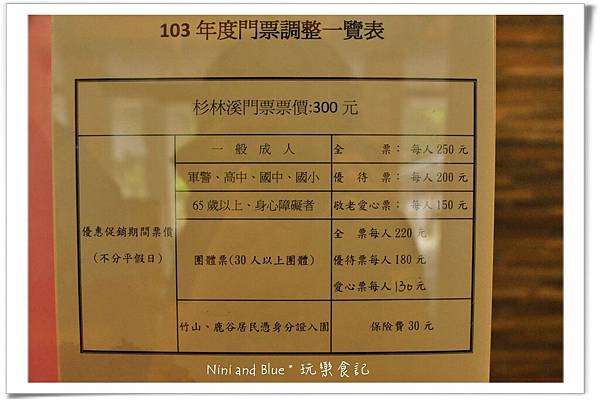 103 年度門票調整一覽表
杉林溪門票票價:300 元
優惠促銷期間票價
(不分平假日)
一 般 成 人
全 票: 每人 250 元
軍警、高中、國中、國小
優 待 票: 每人 200 元
65 歲以上、身心障礙者
敬老愛心票: 每人 150 元
團體票(30 人以上團體)
全 票每人 220 元
優待票每人 180 元
愛心票每人 130 元
竹山、鹿谷居民憑身分證入園
保險費 30 元
Nini and Blue* 玩樂食記